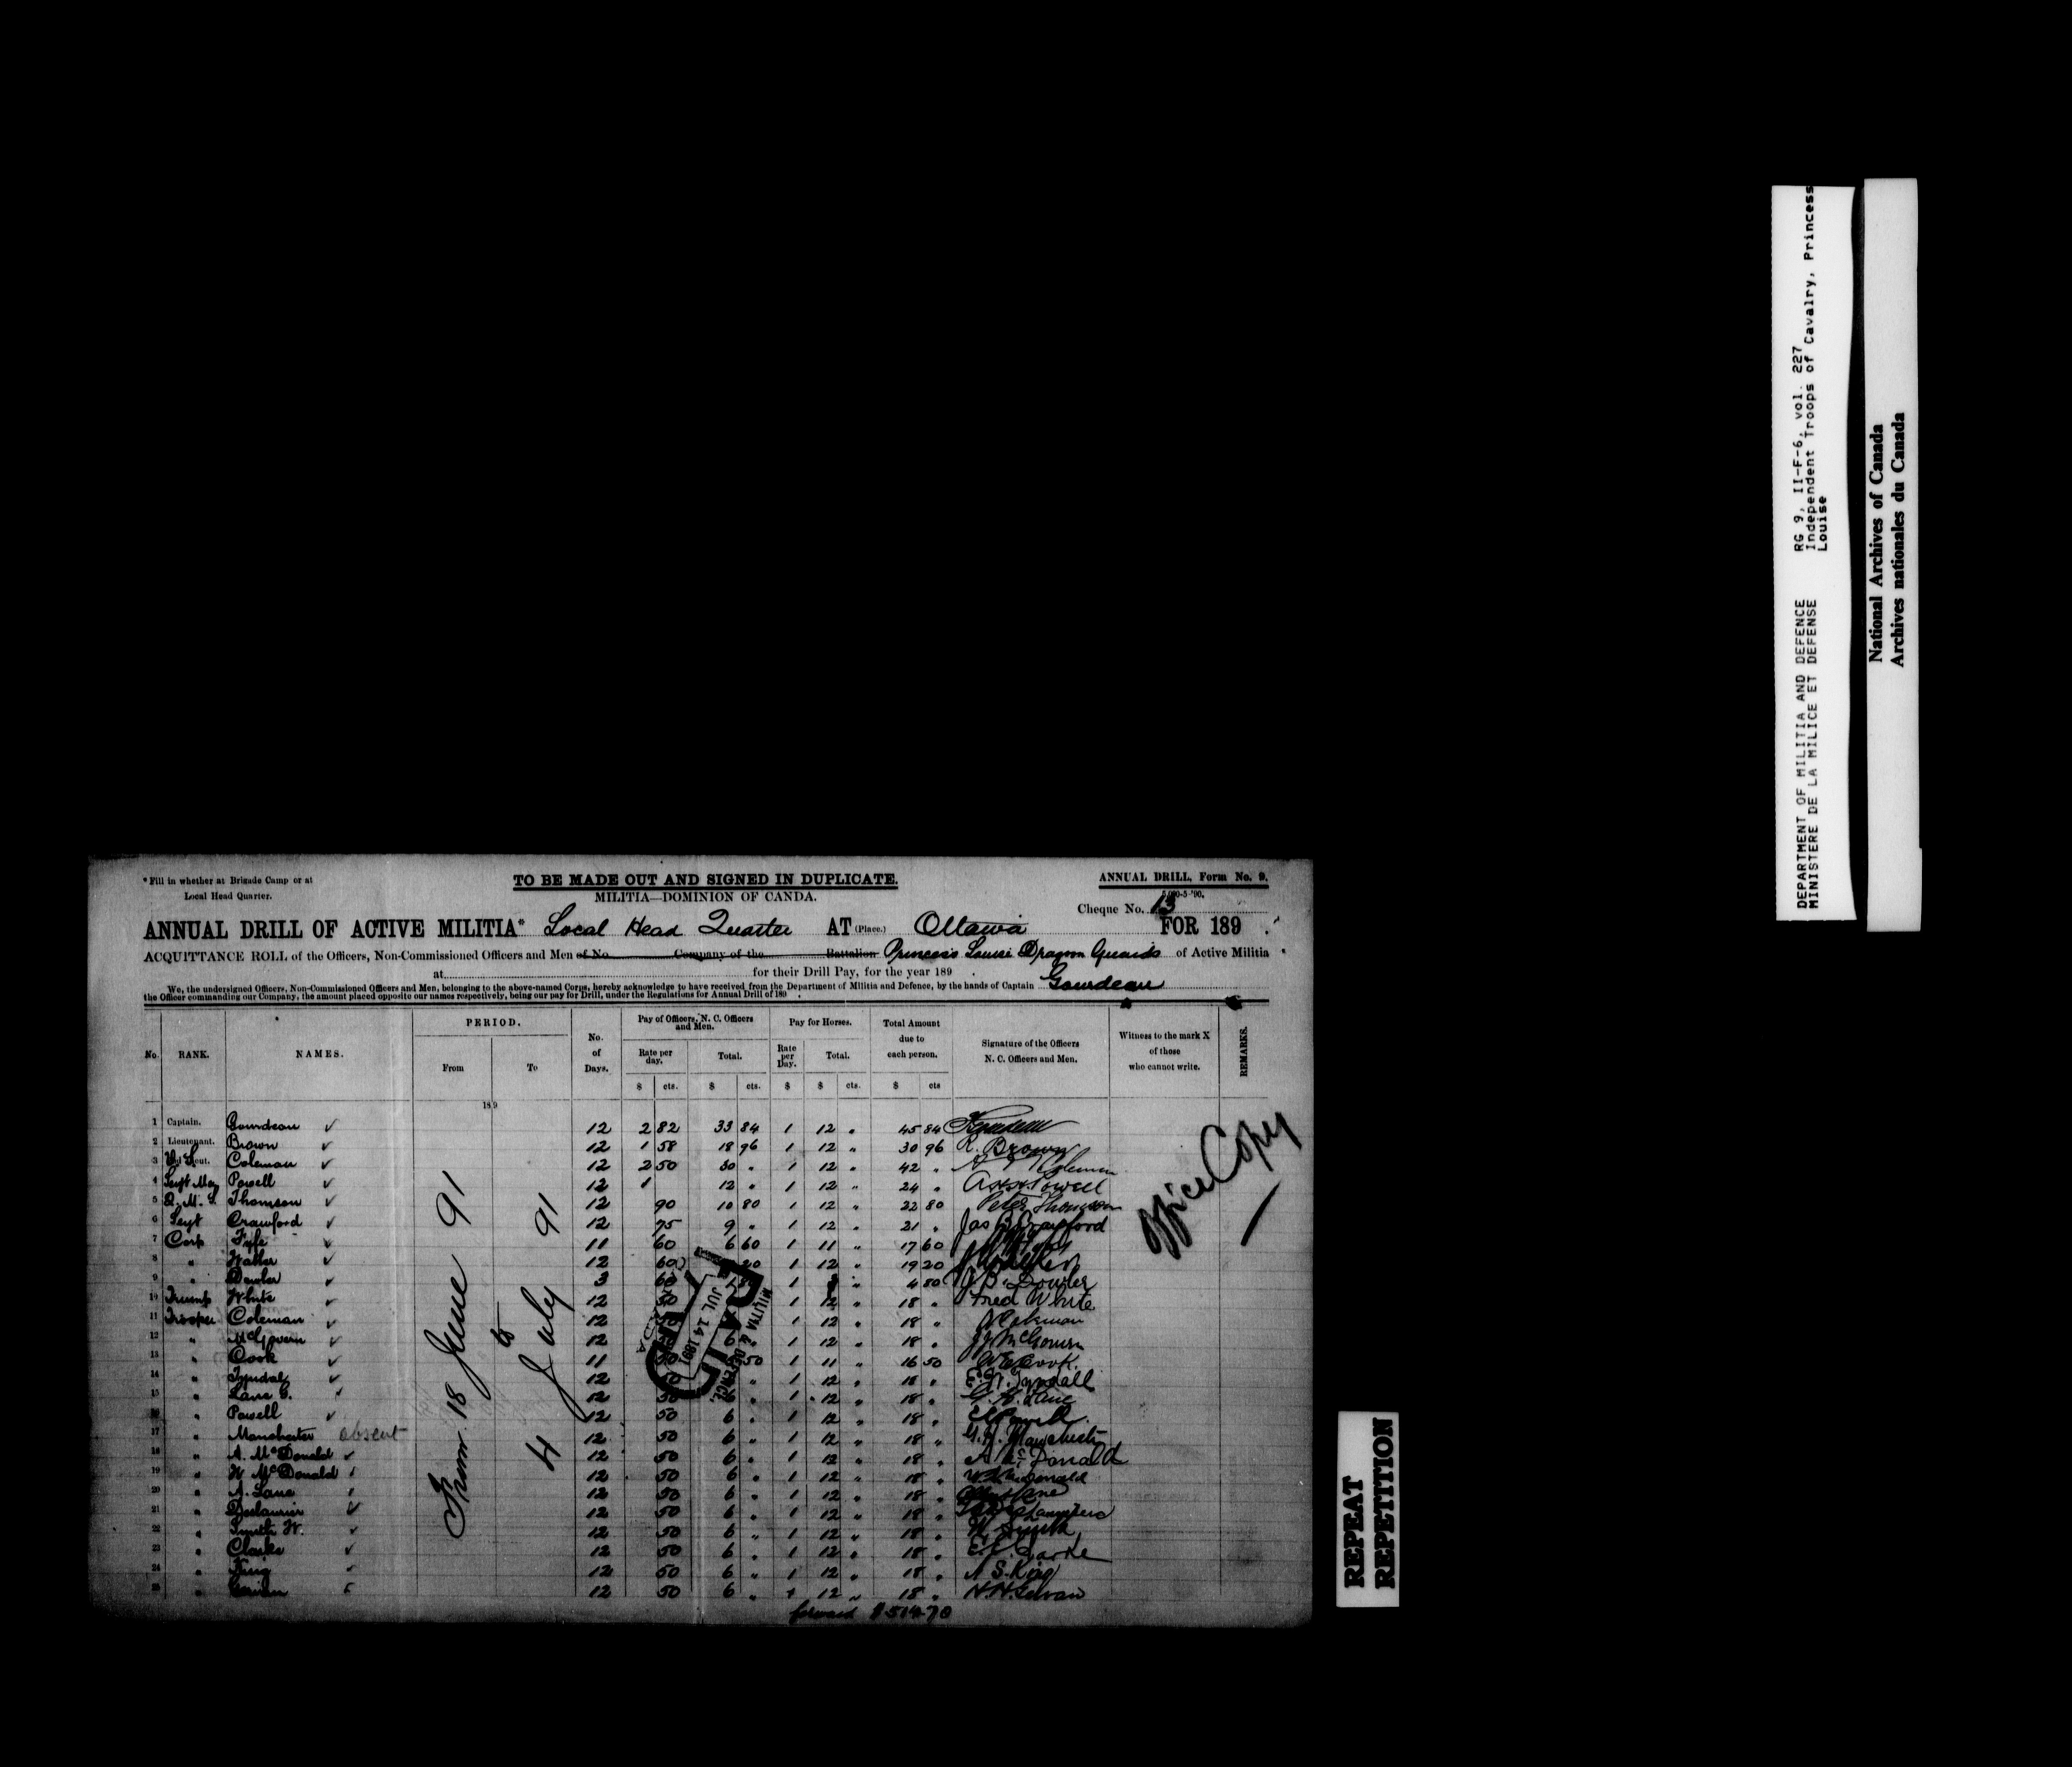 * Fill in whether at Brigade Camp or at
Local Head Quarter.
TO BE MADE OUT AND SIGNED IN DUPLICATE.
MILITIA—DOMINION OF CANDA.
ANNUAL DRILL, Form No. 9.
5,000-5-'90.
Cheque No. 13
ANNUAL DRILL OF ACTIVE MILITIA* Local Head Quarter AT (Place.) Ottawa FOR 189 .
ACQUITTANCE ROLL of the Officers, Non-Commissioned Officers and Men of No. Company of the Battalion Princess Louise Dragoon Guards of Active Militia
at for their Drill Pay, for the year 189 .
We, the undersigned Officers, Non-Commissioned Officers and Men, belonging to the above-named Corps, hereby acknowledge to have received from the Department of Militia and Defence, by the hands of Captain Gourdeau
the Officer commanding our Company, the amount placed opposite our names respectively, being our pay for Drill, under the Regulations for Annual Drill of 189 .
No. RANK. NAMES. PERIOD. From To No. of Days. Pay of Officers, N. C. Officers and Men. Rate per day. Total. Pay for Horses. Rate per Day. Total. Total Amount due to each person. Signature of the Officers N. C. Officers and Men. Witness to the mark X of those who cannot write. REMARKS.
$ cts. $ cts. $ $ cts. $ cts
189
From 18 June 91 to 4 July 91
1 Captain. Gourdeau ✓ 12 2 82 33 84 1 12 " 45 84
2 Lieutenant. Brown ✓ 12 1 58 18 96 1 12 " 30 96 R. Brown
3 Lieut. Coleman ✓ 12 2 50 30 " 1 12 " 42 " Coleman
4 Sergt Maj Powell ✓ 12 1 12 " 1 12 " 24 " Powell
5 Q. M. S. Thomson ✓ 12 90 10 80 1 12 " 22 80 Peter Thomson
6 Sergt Crawford ✓ 12 75 9 " 1 12 " 21 " Jas Crawford
7 Corp Fyfe ✓ 11 60 6 60 1 11 " 17 60
8 " Walker ✓ 12 60 20 1 12 " 19 20 Walker
9 " Dowler ✓ 3 60 1 80 1 " 4 80 J B Dowler
10 Trump White ✓ 12 50 1 12 " 18 " Fred White
11 Trooper Coleman ✓ 12 1 12 " 18 " Coleman
12 " McGovern ✓ 12 6 1 12 " 18 " McGovern
13 " Cook ✓ 11 50 1 11 " 16 50 Cook.
14 " Tyndal ✓ 12 50 " 1 12 " 18 " Tyndall
15 " Lane C. ✓ 12 50 1 12 " 18 " Lane
16 " Powell ✓ 12 50 6 " 1 12 " 18 " Powell
17 " Manchester absent 12 50 6 " 1 12 " 18 " G. H. Manchester
18 " A. McDonald ✓ 12 50 6 " 1 12 " 18 " A McDonald
19 " W McDonald ✓ 12 50 6 " 1 12 " 18 " McDonald
20 " A. Lane ✓ 12 50 6 " 1 12 " 18 " Lane
21 " Deslaurier ✓ 12 50 6 " 1 12 " 18 "
22 " Smith W. ✓ 12 50 6 " 1 12 " 18 " W Smith
23 " Clarke ✓ 12 50 6 " 1 12 " 18 " Clarke
24 " King ✓ 12 50 6 " 1 12 " 18 " S. King
25 " 12 50 6 " 1 12 " 18 "
forward $ 514.70
Office Copy
PAID
MILITIA & DEFENCE.
JUL 14 1891
DEPARTMENT OF MILITIA AND DEFENCE RG 9, II-F-6, vol. 227
MINISTERE DE LA MILICE ET DEFENSE Independent Troops of Cavalry, Princess
Louise
National Archives of Canada
Archives nationales du Canada
REPEAT
REPETITION